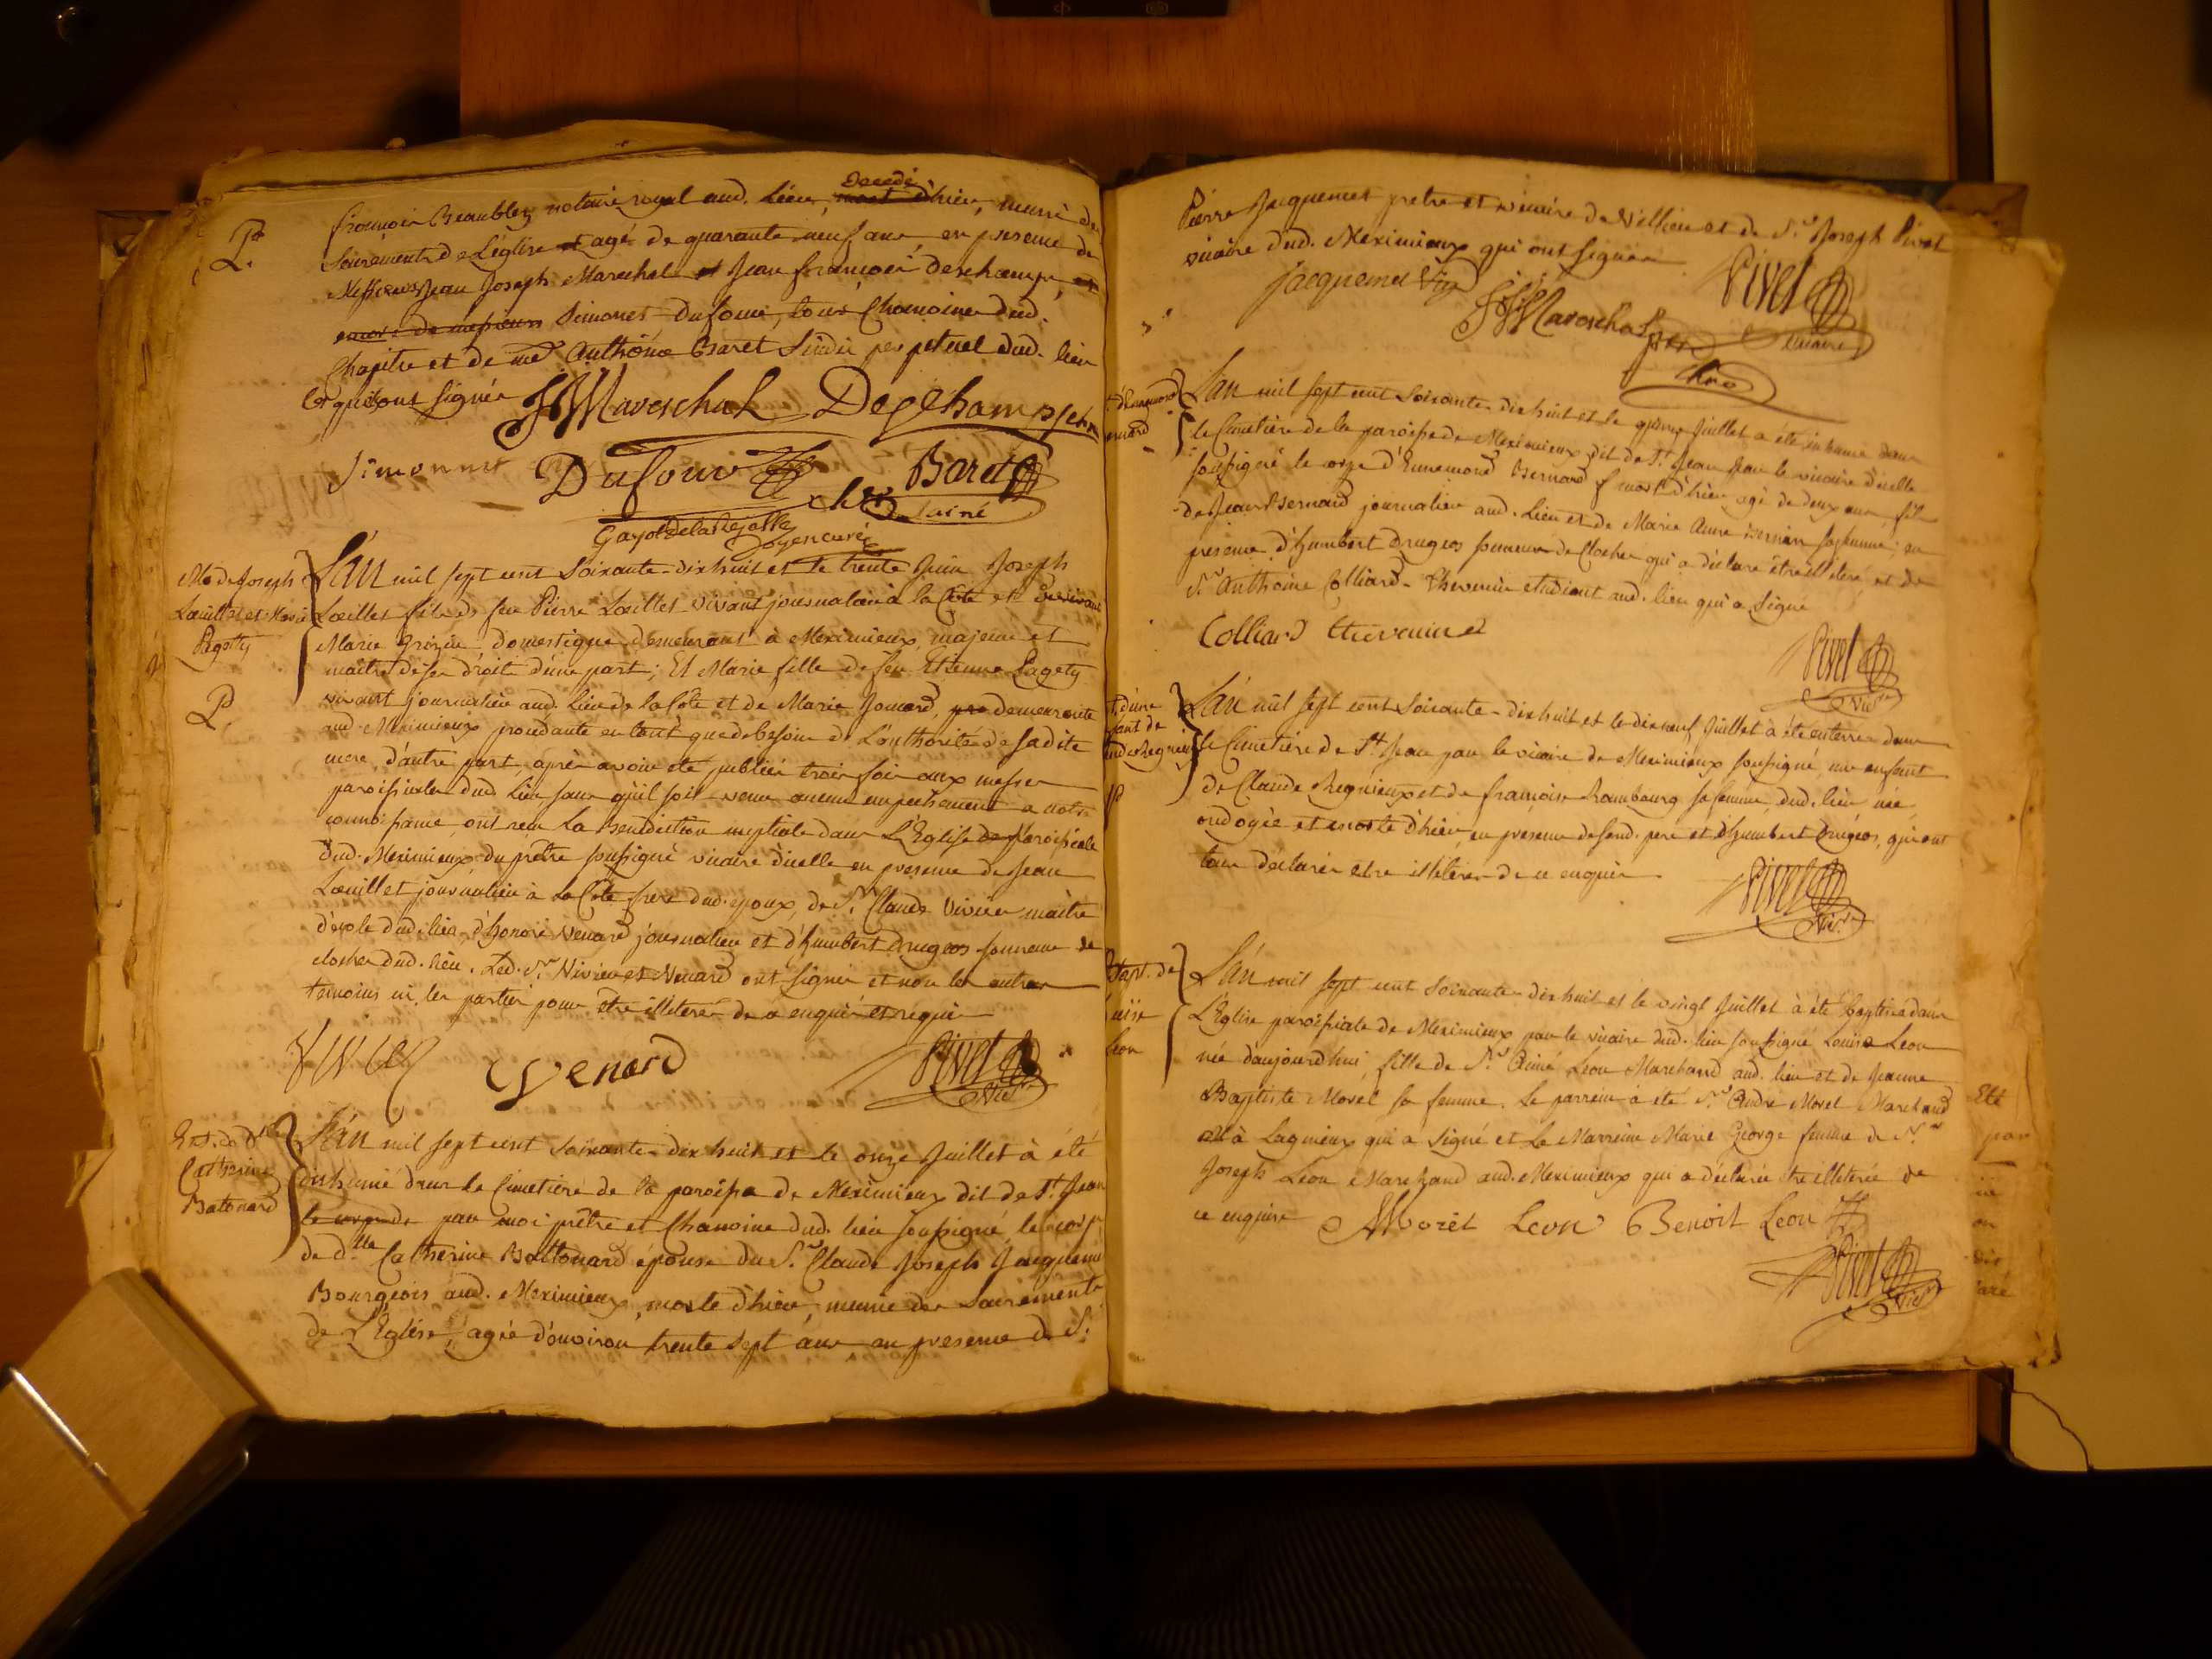 françois Beaublez notaire royal aud. Lieu, decedé d'hier, muni des
Sacrements de L'eglise agé de quarante neuf ans, en presence de
Messieurs Jean Joseph Mareschal et Jean françois Deschamps et
encore de messieurs Simonet Dufour, tous Chanoines dud.
Chapitre et de me Anthoine Baret Sindic perpetuel dud. lieu
Lesquels ont signés
JJMareschal Deschamps chne
Simonnet Dufour chne Baret L'ainé
Gayot Delas Doyen curé
Me de Joseph
Lœuillet et Marie
Pagetty
L'an mil sept cent Soixante-dix huit et le trente Juin Joseph
Lœillet fils de feu Pierre Lœillet vivant journalier à la Côte et
Marie Grizin, Domestique demeurant à Meximieux, majeur et
maître de ses droits d'une part; Et Marie fille de feu Etienne Pagety
vivant journalier aud. Lieu de la Côte et de Marie Jomard, demeurante
aud. Meximieux procédante en tant que de besoin de L'authorité de sadite
mere, d'autre part, après avoir été publiés trois fois aux messes
paroissiales dud. Lieu, sans qu'il soit venu aucun empechement a notre
connoissance ont recu La Benediction nuptiale dans L'Eglise paroissiale
dud. Meximieux du prêtre soussigné vicaire d'icelle en presence de Jean
Lœuillet journalier à La Côte frere dud. époux, de Sr. Claude Vivier maître
d'ecole dud. lieu, d'honoré Venard journalier et d'humbert Drugeos sonneur de
cloches dud. lieu. Led. Sr Vivier et Venard ont signés et non les autres
temoins ni les parties pour être illiterés de ce enquis et requis
Vivier Venard Pivet Vicre
Ent. de dlle
Catherine
Batonard
L'an mil sept cent soixante-dix huit et le onze Juillet à été
inhumé dans le Cimetière de la paroisse de Meximieux dit de St. Jean
le corps de par moi prêtre et Chanoine dud. lieu soussigné, le corps
de dlle Catherine Battonard épouse du Sr. Claude Joseph Jacquemet
Bourgeois aud. Meximieux, morte d'hier, munie des Sacrements
de L'Eglise, agée d'environ trente sept ans en presence de Sr.
Pierre Jacquemet pretre et vicaire de Villieu et de Sr Joseph Pivet
vicaire dud. Meximieux qui ont signés
Jacquemet Vic Pivet Vicaire
JJMareschal
chne
d'Ennemond
L'an mil sept cent soixante-dix huit et le Juillet a été inhumé dans
le Cimetière de la paroisse de Meximieux dit de St. Jean par le vicaire d'icelle
soussigné le corps d'Ennemond Bernard mort d'hier agé de deux ans fils
de Jean Bernard journalier aud. Lieu et de Marie Anne sa femme; en
presence d'humbert Drugeos sonneur de Cloches qui a declaré être illiteré et de
Sr. Anthoine Colliard-Thevenin etudiant aud. lieu qui a signé
Colliard Thevenin
Pivet Vicre
d'une
fant de
ude Regnieux
L'an mil sept cent soixante-dix huit et le dix neuf Juillet à été enterré dans
le Cimetière de St. Jean par le vicaire de Meximieux soussigné, une enfant
de Claude Regnieux et de françoise Rambourg sa femme, dud. lieu née
ondoyée et morte d'hier, en présence de sond. pere et d'humbert Drugeos, qui ont
tous declarés etre illiterés de ce enquis
Pivet Vicre
Bapt. de
Louise
Leon
L'an mil sept cent soixante-dix huit et le vingt Juillet à été baptisée dans
L'Eglise paroissiale de Meximieux par le vicaire dud. lieu soussigné Louise Leon
née d'aujourd'hui, fille de Sr. Aimé Leon Marchand aud. lieu et de Jeanne
Baptiste Morel sa femme. Le parrein à été Sr. André Morel Marchand
à Lagnieux qui a signé et La Marreine Marie George femme de Sr.
Joseph Léon Marchand aud. Meximieux qui a déclaré etre illiterée de
ce enquise Morel Leon Benoit Leon
Pivet Vicre